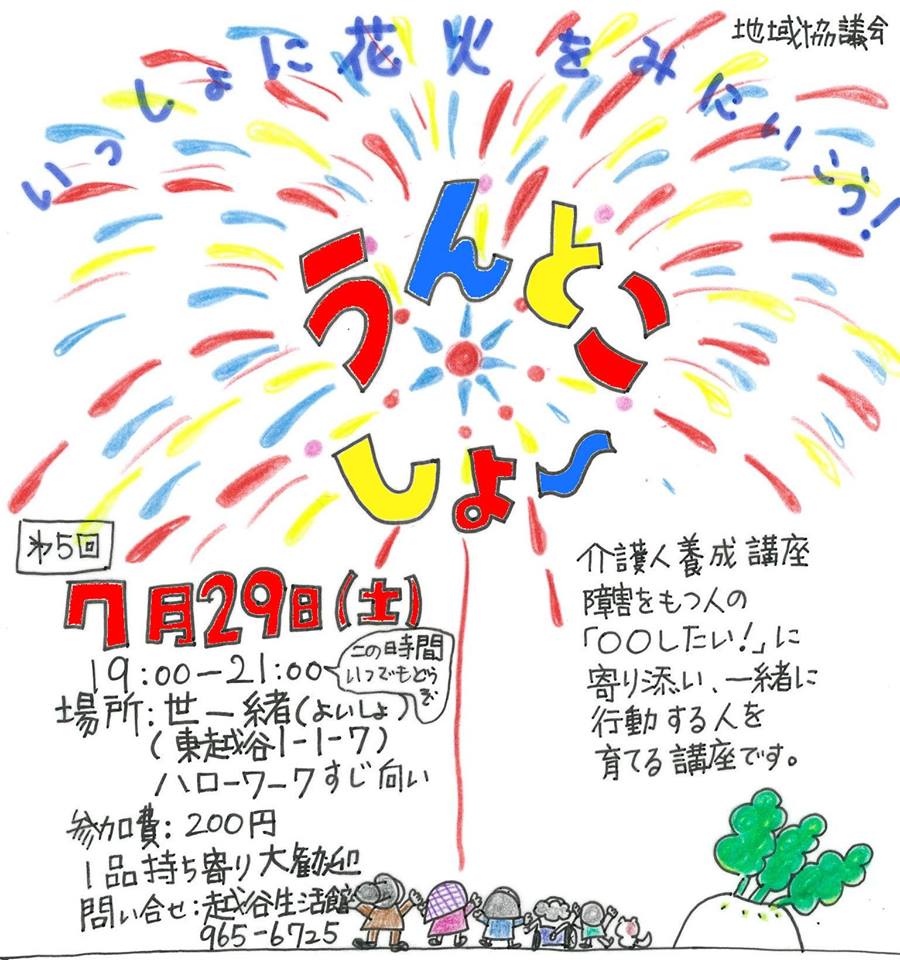 地域協議会
いっしょに花火をみにいこう!
うんとこ
しょ～
㐧5回
7月29日(土)
19:00-21:00
この時間
いつでもどうぞ
場所:世一緒(よいしょ)
(東越谷1-1-7)
ハローワークすじ向い
参加費:200円
1品持ち寄り大歓迎
問い合せ:越谷生活館
965-6725
介護人養成講座
障害をもつ人の
「〇〇したい!」に
寄り添い、一緒に
行動する人を
育てる講座です。